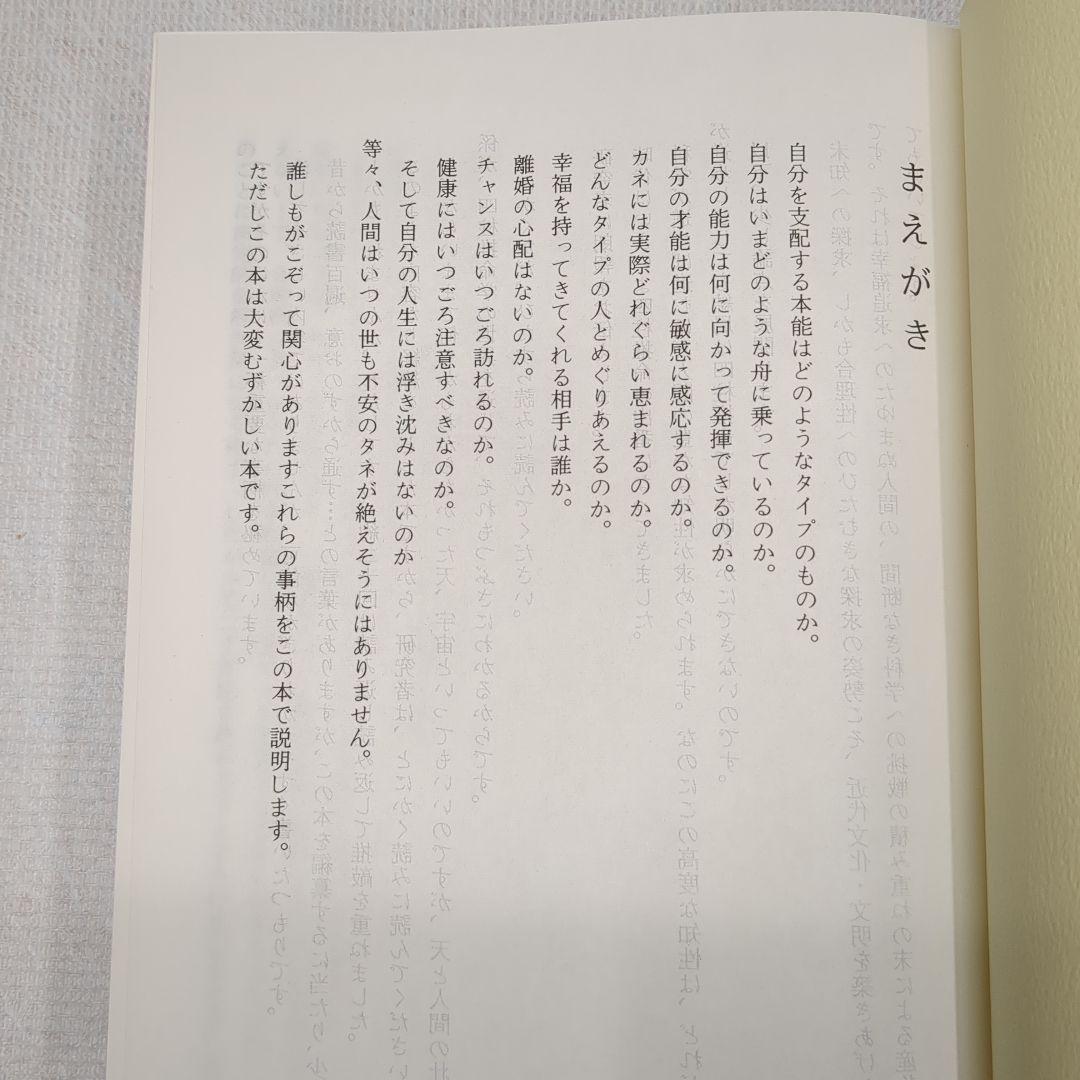 まえがき
自分を支配する本能はどのようなタイプのものか。
自分はいまどのような舟に乗っているのか。
自分の能力は何に向かって発揮できるのか。
自分の才能は何に敏感に感応するのか。
カネには実際どれぐらい恵まれるのか。
どんなタイプの人とめぐりあえるのか。
幸福を持ってきてくれる相手は誰か。
離婚の心配はないのか。
チャンスはいつごろ訪れるのか。
健康にはいつごろ注意すべきなのか。
そして自分の人生には浮き沈みはないのか
等々、人間はいつの世も不安のタネが絶えそうにはありません。
誰しもがこぞって関心がありますこれらの事柄をこの本で説明します。
ただしこの本は大変むずかしい本です。